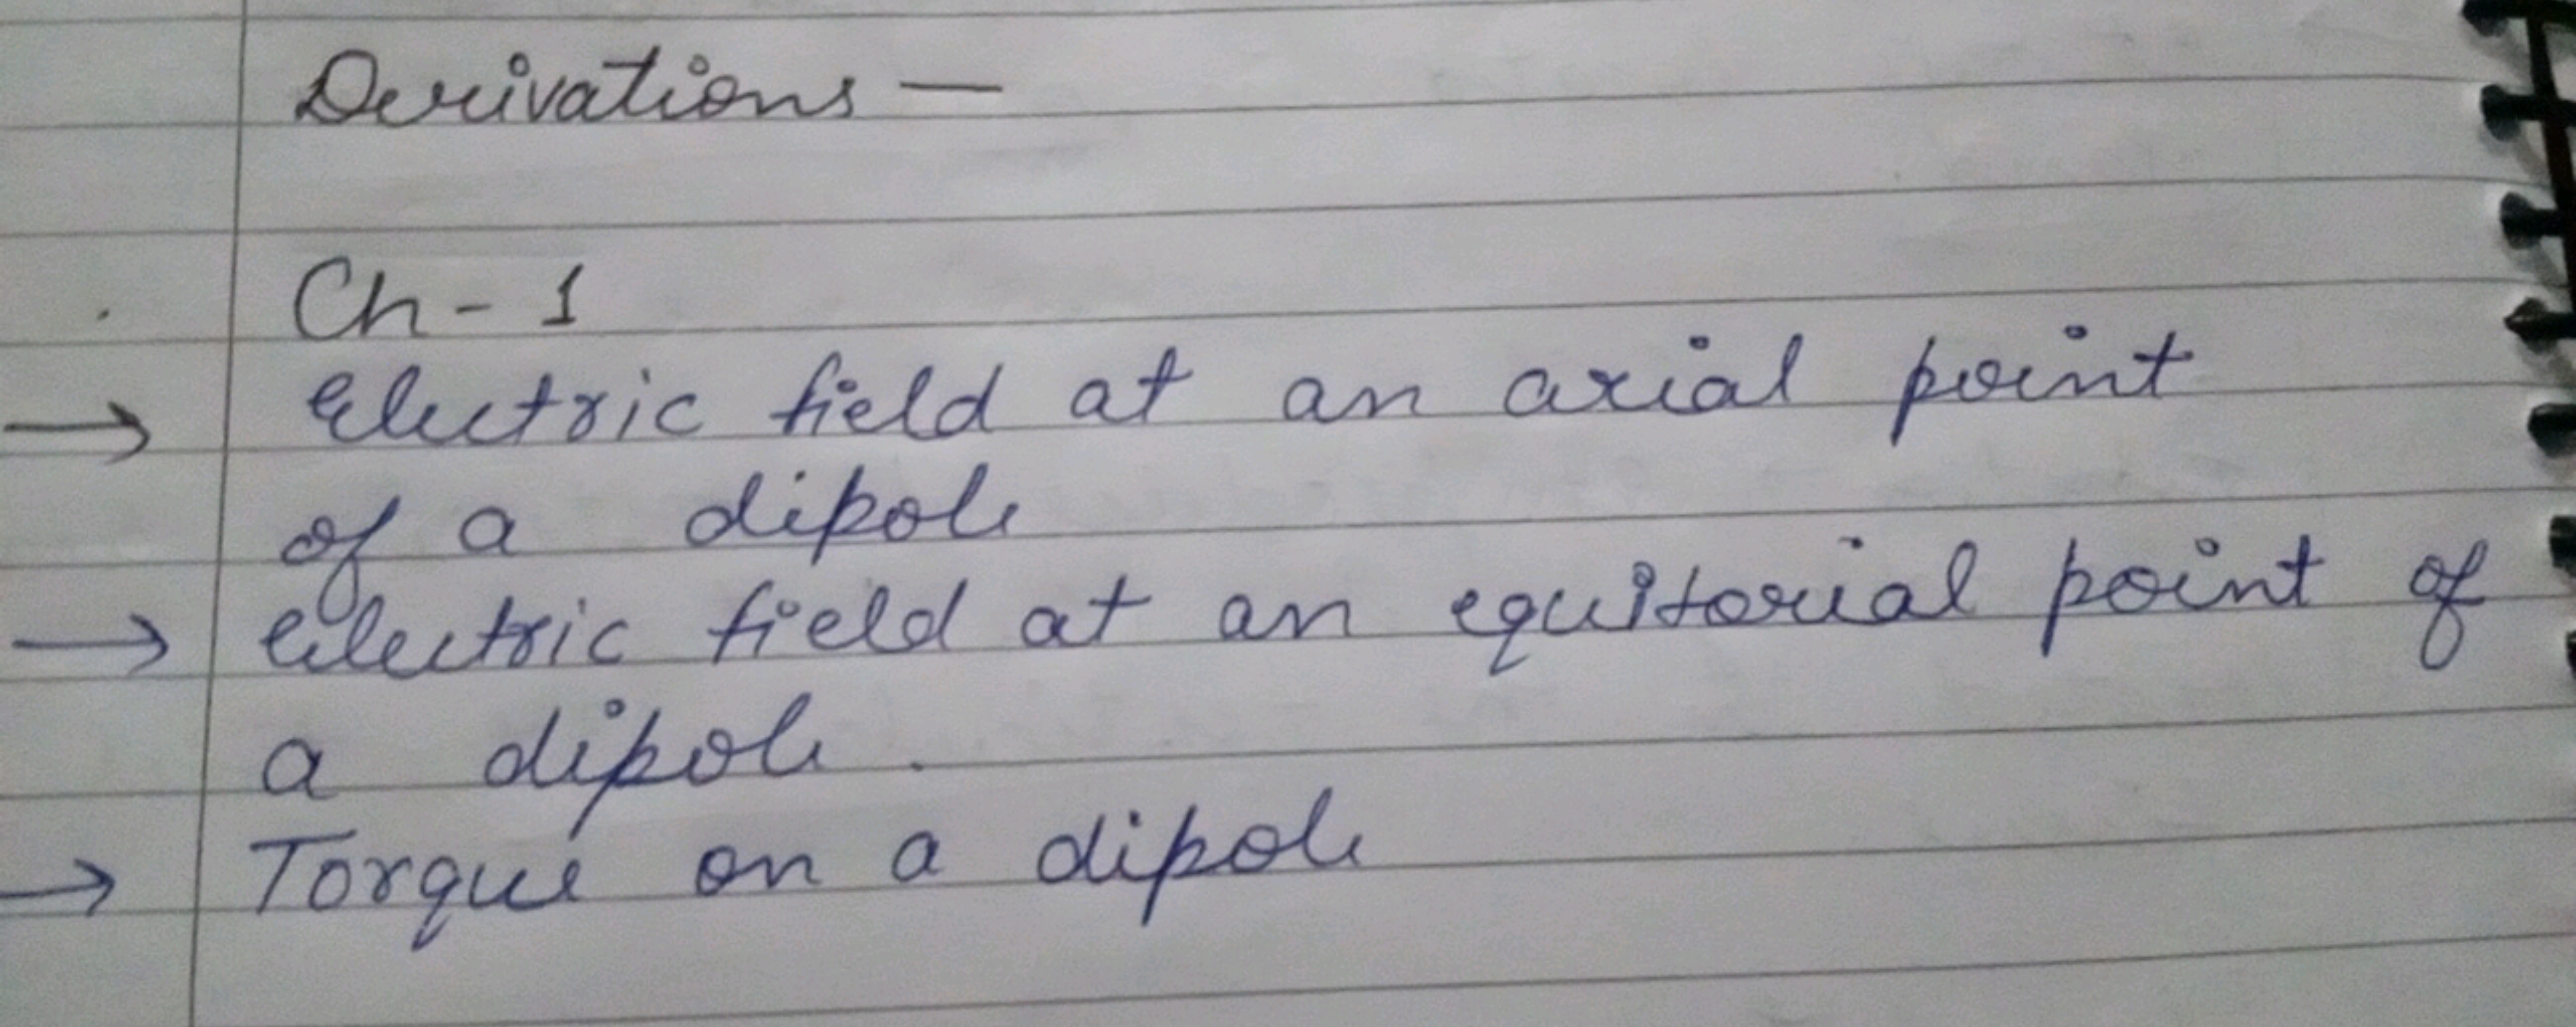 Derivations —
Ch - 1
→ Electric field at an axial point
of a dipole
→ Electric field at an equitorial point of
a dipole.
→ Torque on a dipole